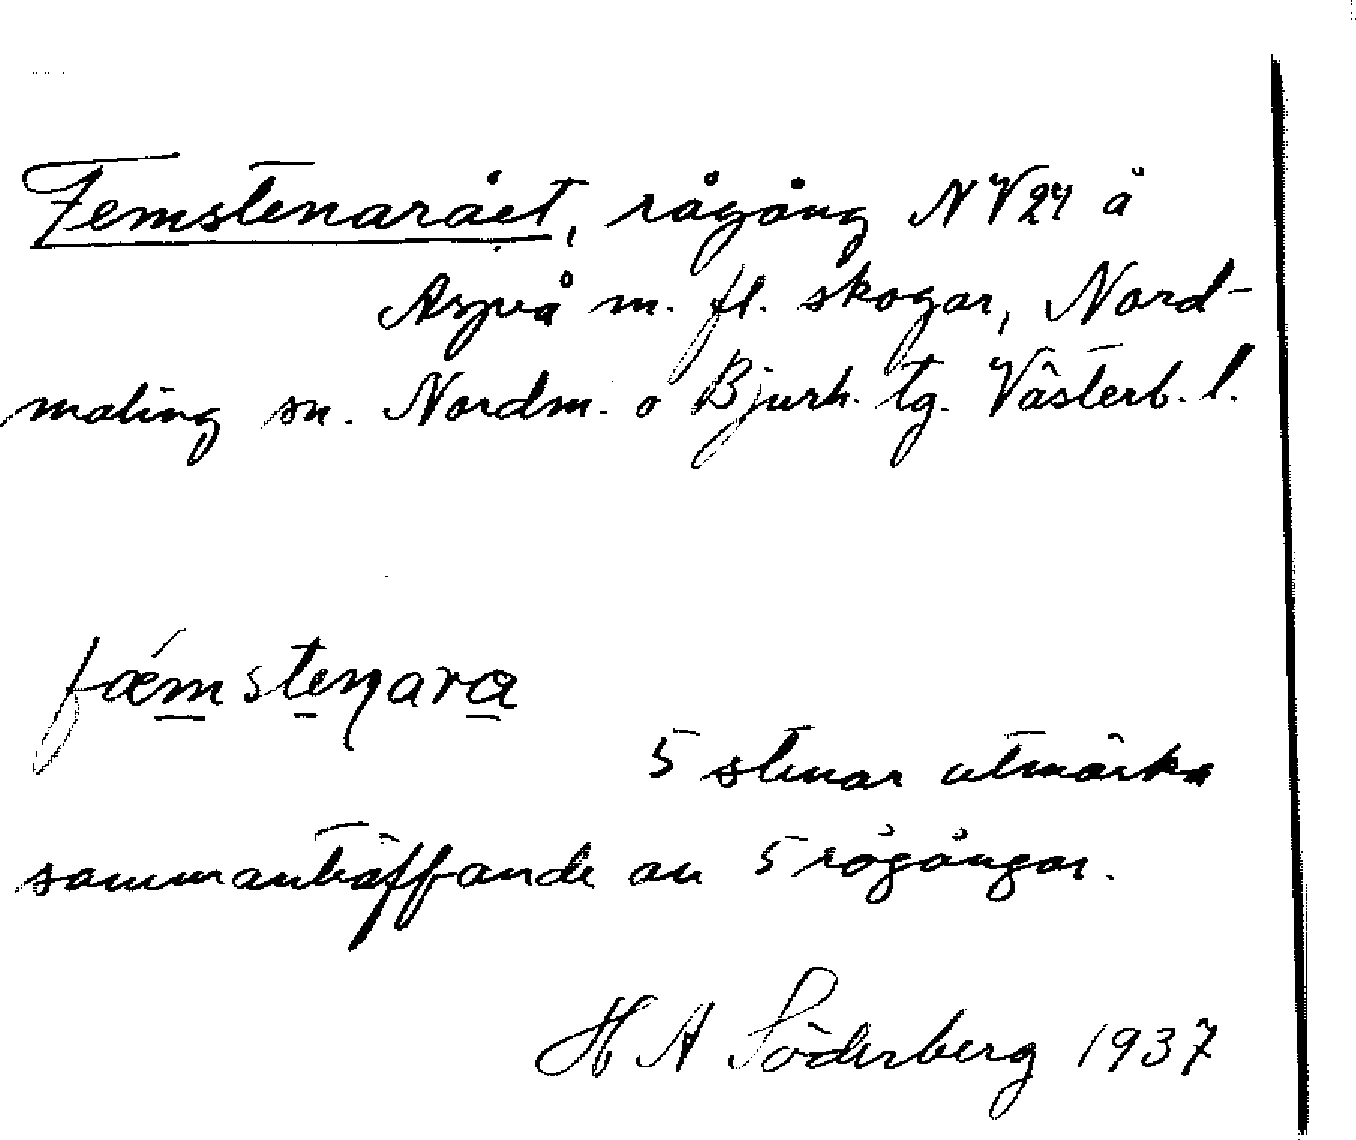 Femstenarået, rågång NV24 å
Aspeå m. fl. skogar, Nord-
maling sn. Nordm. o Bjurh. tg. Västerb. l.
fæ´mstenara
5 stenar utmärka
sammanträffande av 5 rågångar.
H A Söderberg 1937